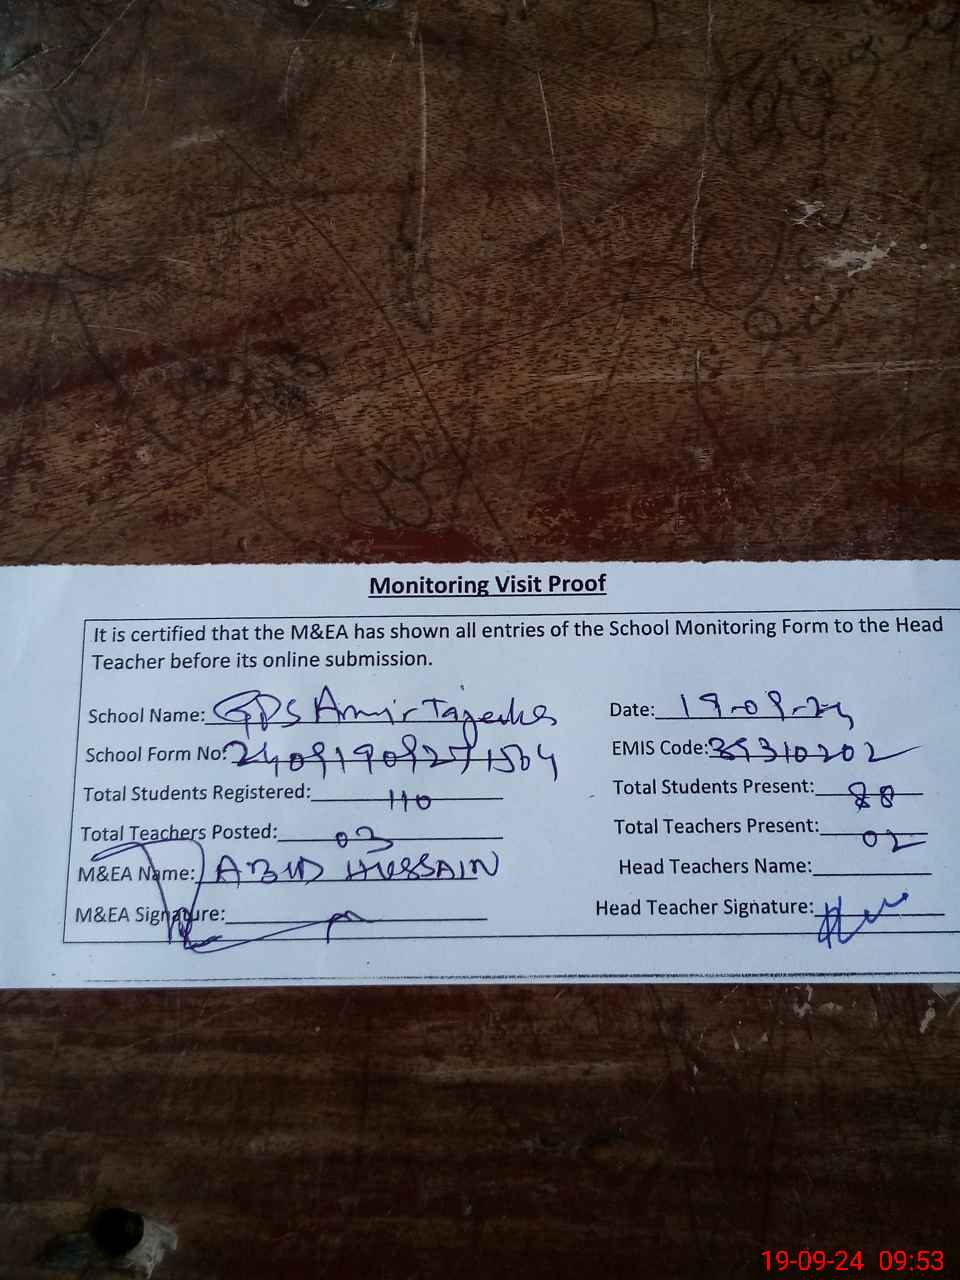 Monitoring Visit Proof
It is certified that the M&EA has shown all entries of the School Monitoring Form to the Head
Teacher before its online submission.
School Name: GPS Amir
Date: 19-09-24
School Form No:
EMIS Code:
Total Students Registered: 110
Total Students Present: 88
Total Teachers Posted: 03
Total Teachers Present: 02
M&EA Name: ABID HUSSAIN
Head Teachers Name:
M&EA Signature:
Head Teacher Signature:
19-09-24 09:53